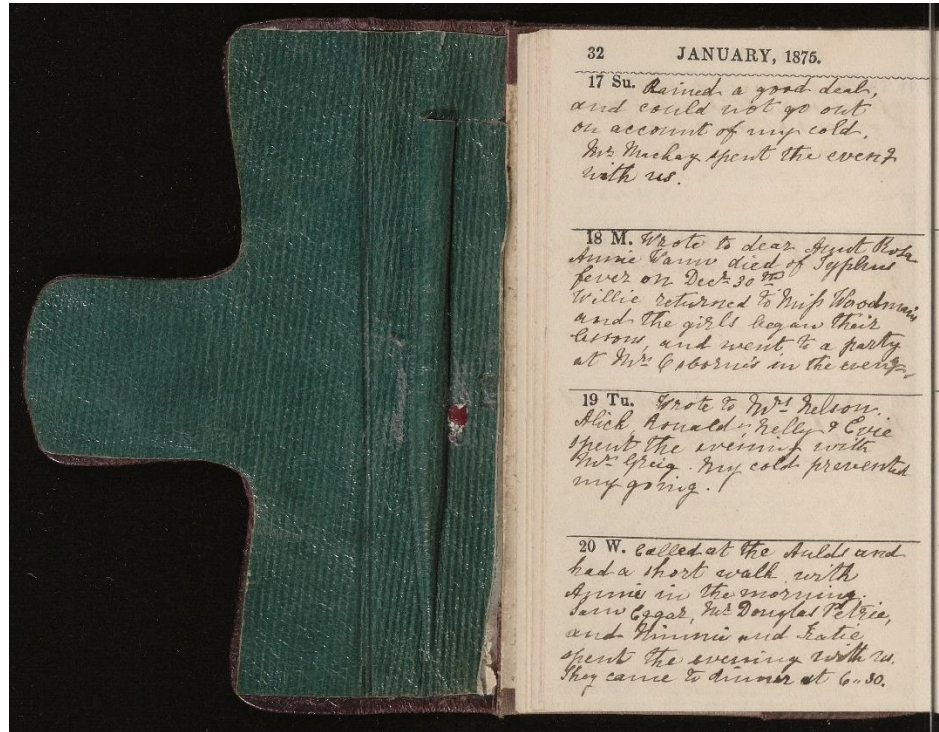 32 JANUARY, 1875.
17 Su. Rained a good deal,
and could not go out
on account of my cold.
Mr Mackay spent the eveng
with us.
18 M. Wrote to dear Aunt Rosa
Annie died of Typhus
fever on Decr 30th
Willie returned to Miss Woodmain
and the girls began their
lessons, and went to a party
at Mrs Osborne's in the eveng
19 Tu. Wrote to Mrs Nelson.
Alick, Ronald, Nelly & Evie
spent the evening with
Mrs Greig. My cold prevented
my going.
20 W. Called at the Aulds and
had a short walk with
Annie in the morning.
Sam Eggar, Mr Douglas Petrie,
and Minnie and Katie
spent the evening with us.
They came to dinner at 6-30.